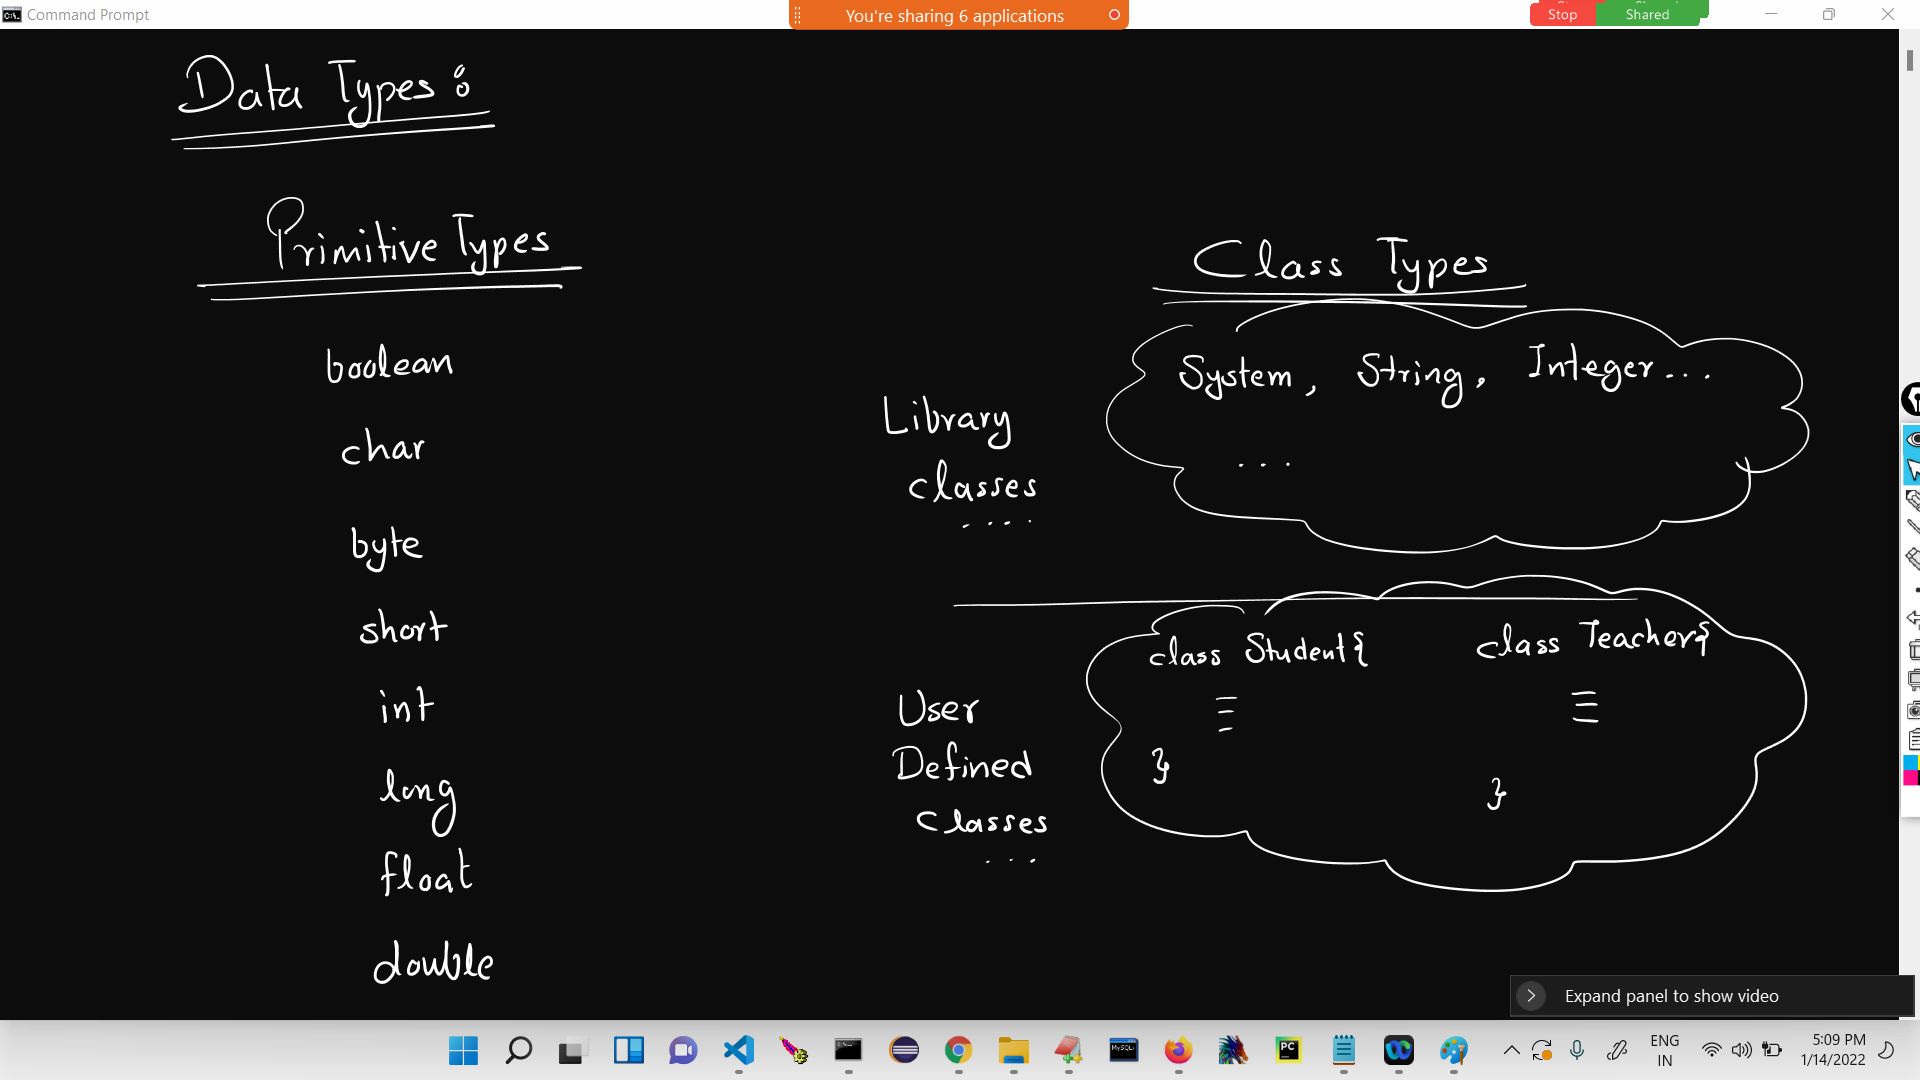 Command Prompt
You're sharing 6 applications
Stop
Shared
Data Types:
Primitive Types
boolean
char
byte
short
int
long
float
double
Class Types
Library
classes
....
System, String, Integer...
...
User
Defined
Classes
...
class Student{
}
class Teacher{
}
Expand panel to show video
MySQL
PC
ENG
IN
5:09 PM
1/14/2022